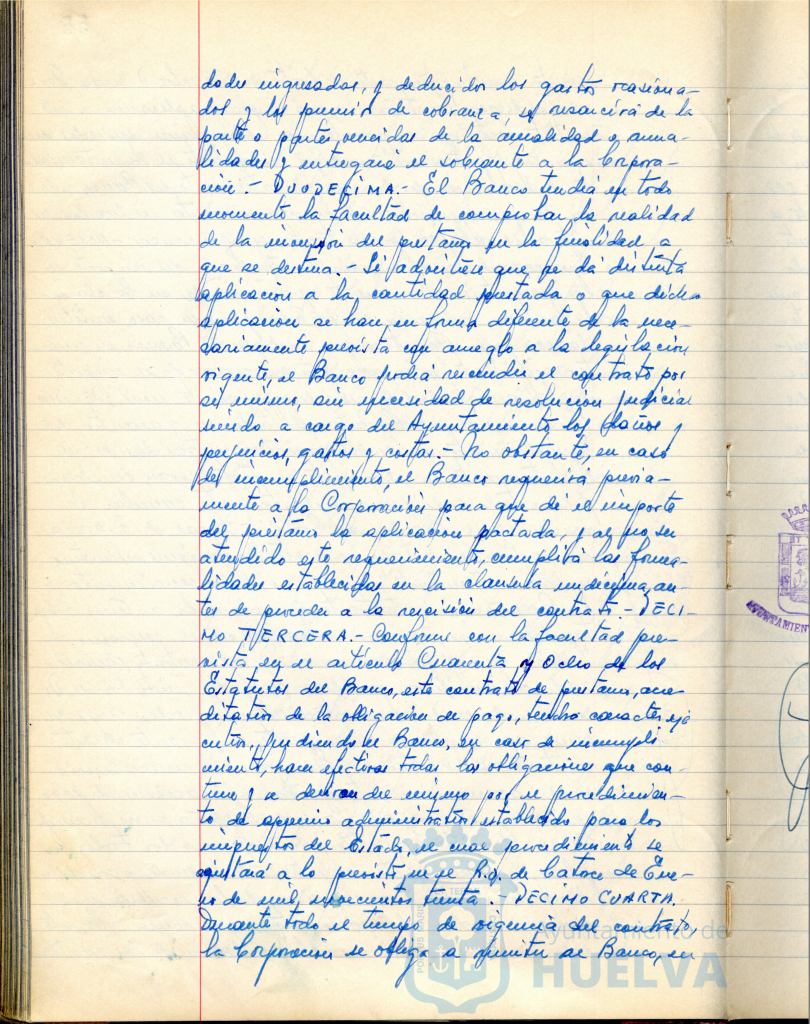 dades ingresadas, y deducidos los gastos ocasiona-
dos y los premios de cobranza, se resarcirá de la
parte o partes vencidas de la anualidad o anua-
lidades y entregará el sobrante a la Corpora-
ción.- DUODECIMA.- El Banco tendrá en todo
momento la facultad de comprobar la realidad
de la inversión del prestamo en la finalidad a
que se destina.- Si advirtiese que se dá distinta
aplicación a la cantidad prestada o que dicha
aplicación se hace en forma diferente de la nece-
sariamente prevista con arreglo a la legislación
vigente, el Banco podrá rescindir el contrato por
si mismo, sin necesidad de resolución judicial
siendo a cargo del Ayuntamiento los daños y
perjuicios, gastos y costas.- No obstante, en caso
de incumplimiento, el Banco requerirá previa-
mente a la Corporación para que dé el importe
del préstamo la aplicación pactada, y al no ser
atendido este requerimiento, cumplirá las forma-
lidades establecidas en la clausula undécima, an-
tes de proceder a la rescisión del contrato.- DECI-
MO TERCERA.- Conforme con la facultad pre-
vista en el artículo Cuarenta y Ocho de los
Estatutos del Banco, este contrato de prestamo, acre-
ditativo de la obligación de pago, tendrá caracter eje
cutivo, pudiendo el Banco, en caso de incumpli
miento, hacer efectivas todas las obligaciones que con-
tiene y se derivan del mismo por el procedimien-
to de apremio administrativo establecido para los
impuestos del Estado, el cual procedimiento se
ajustará a lo previsto en el R.D. de Catorce de Ene-
ro de mil novecientos treinta.- DECIMO CUARTA.
Durante todo el tiempo de vigencia del contrato,
la Corporación se obliga a remitir al Banco, en
Ayuntamiento de
HUELVA